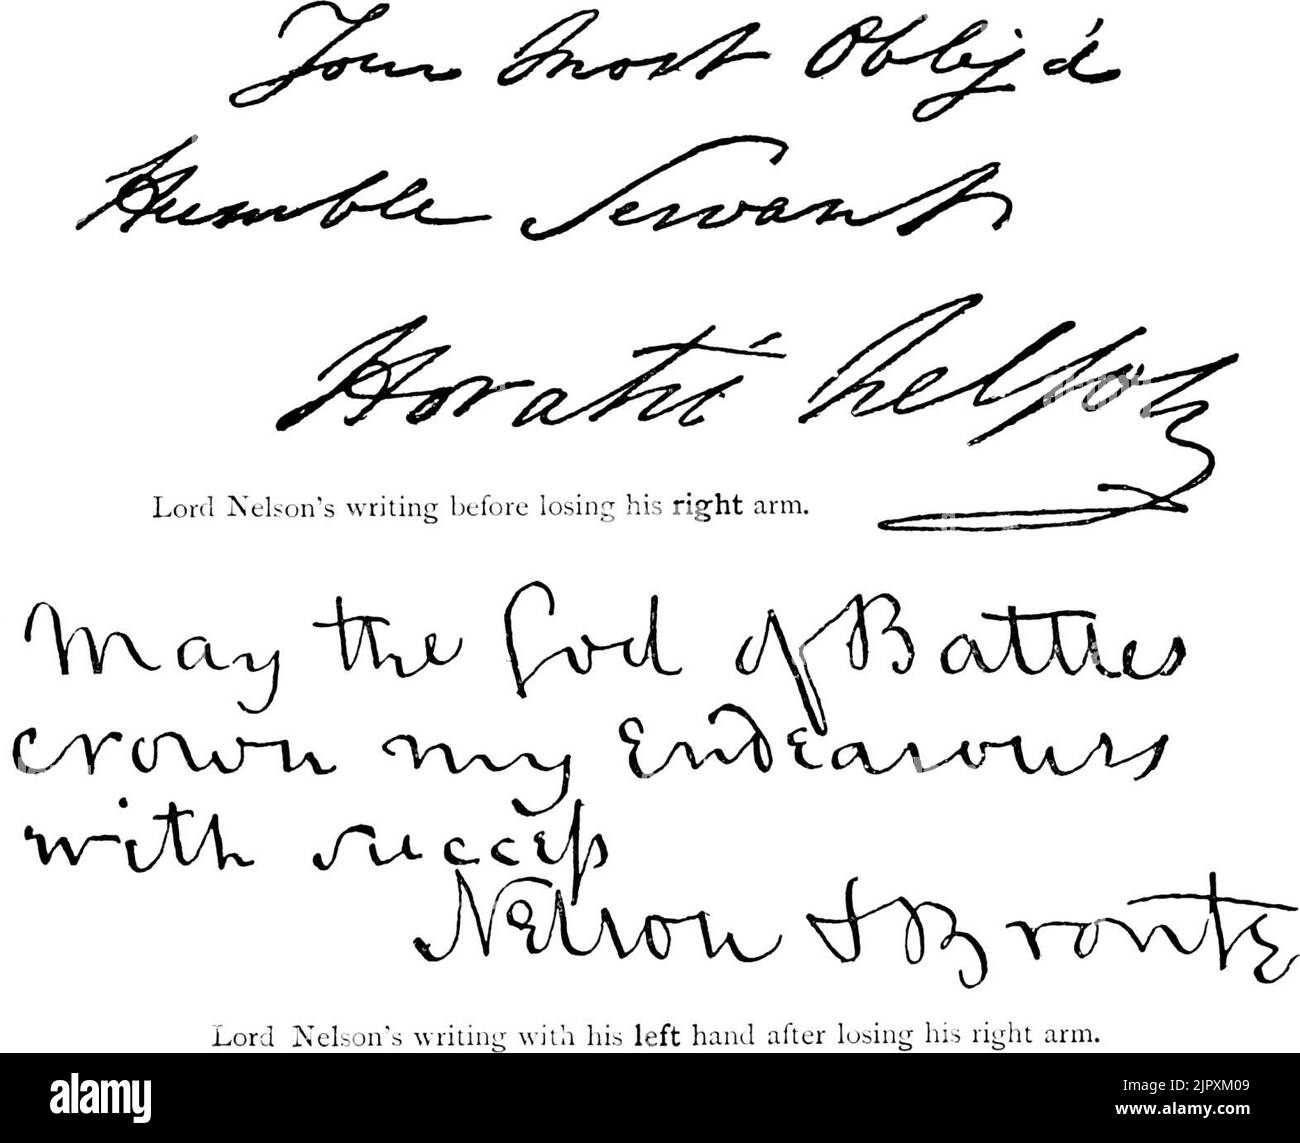 Your Most Oblig'd
Humble Servant
Horatio Nelson
Lord Nelson's writing before losing his right arm.
May the God of Battles
crown my Endeavours
with success
Nelson & Bronte
Lord Nelson's writing with his left hand after losing his right arm.
alamy
Image ID: 2JPXM09
www.alamy.com